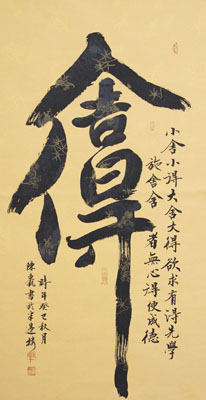 舍得
小舍小得大舍大得欲求有得先學
施舍舍者無心得使成德
時年癸巳秋月
陳 書於半邊樓